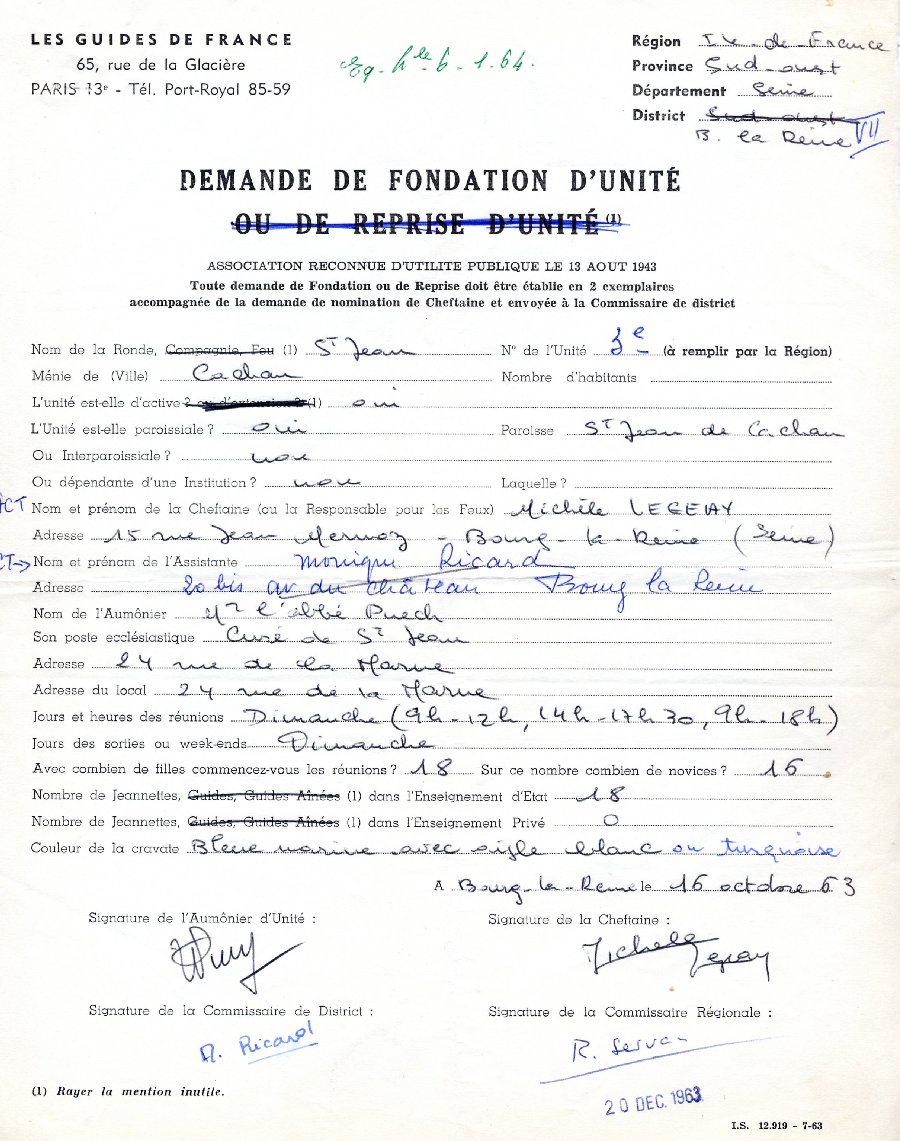 LES GUIDES DE FRANCE
65, rue de la Glacière
PARIS 13e - Tél. Port-Royal 85-59
6 - 1. 64.
Région I. de France
Province Sud-ouest
Département Seine
District Sud-ouest VII
B. la Reine
DEMANDE DE FONDATION D'UNITÉ
OU DE REPRISE D'UNITÉ (1)
ASSOCIATION RECONNUE D'UTILITE PUBLIQUE LE 13 AOUT 1943
Toute demande de Fondation ou de Reprise doit être établie en 2 exemplaires
accompagnée de la demande de nomination de Cheftaine et envoyée à la Commissaire de district
Nom de la Ronde, Compagnie, Feu (1) St Jean N° de l'Unité 3e (à remplir par la Région)
Ménie de (Ville) Cachan Nombre d'habitants
L'unité est-elle d'active ? ou d'extension ? (1) oui
L'Unité est-elle paroissiale ? oui Paroisse St Jean de Cachan
Ou Interparoissiale ? non
Ou dépendante d'une Institution ? non Laquelle ?
ACT Nom et prénom de la Cheftaine (ou la Responsable pour les Feux) Michèle LEGEAY
Adresse 15 rue Jean Mermoz - Bourg-la-Reine (Seine)
CT→ Nom et prénom de l'Assistante Monique Ricard
Adresse 20 bis av du château Bourg la Reine
Nom de l'Aumônier Mr l'abbé Puech
Son poste ecclésiastique Curé de St Jean
Adresse 24 rue de la Marne
Adresse du local 24 rue de la Marne
Jours et heures des réunions Dimanche (9h-12h, 14h-17h30, 9h-18h)
Jours des sorties ou week-ends Dimanche
Avec combien de filles commencez-vous les réunions ? 18 Sur ce nombre combien de novices ? 16
Nombre de Jeannettes, Guides, Guides Aînées (1) dans l'Enseignement d'Etat 18
Nombre de Jeannettes, Guides, Guides Aînées (1) dans l'Enseignement Privé 0
Couleur de la cravate Bleue marine avec aigle blanc ou turquoise
A Bourg-la-Reine le 16 octobre 63
Signature de l'Aumônier d'Unité : Signature de la Cheftaine :
Michele Legeay
Signature de la Commissaire de District : Signature de la Commissaire Régionale :
A. Ricard R. Servan
20 DEC. 1963
(1) Rayer la mention inutile.
I.S. 12.919 - 7-63